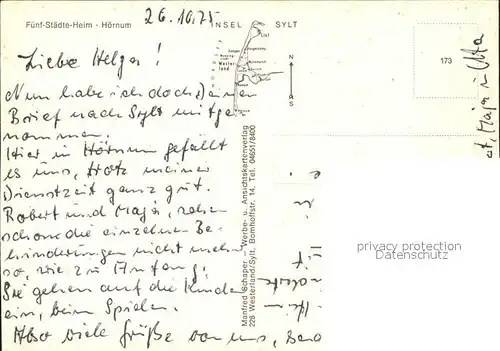 Fünf-Städte-Heim · Hörnum
26.10.75
INSEL SYLT
Liebe Helga!
Nun habe ich doch Deinen
Brief nach Sylt mitge
nommen.
Hier in Hörnum gefällt
es uns, trotz meiner
Dienstzeit ganz gut.
Robert und Maja, sehen
schon die einzelnen Be-
hinderungen nicht mehr
so, wie zu Anfang;
Sie gehen auf die Kinder
ein, beim Spielen.
Also viele Grüße von uns,
N
S
173
Manfred Schaper – Werbe- u. Ansichtskartenverlag
228 Westerland/Sylt, Bomhoffstr. 14, Tel. 04651/8400
privacy protection
Datenschutz